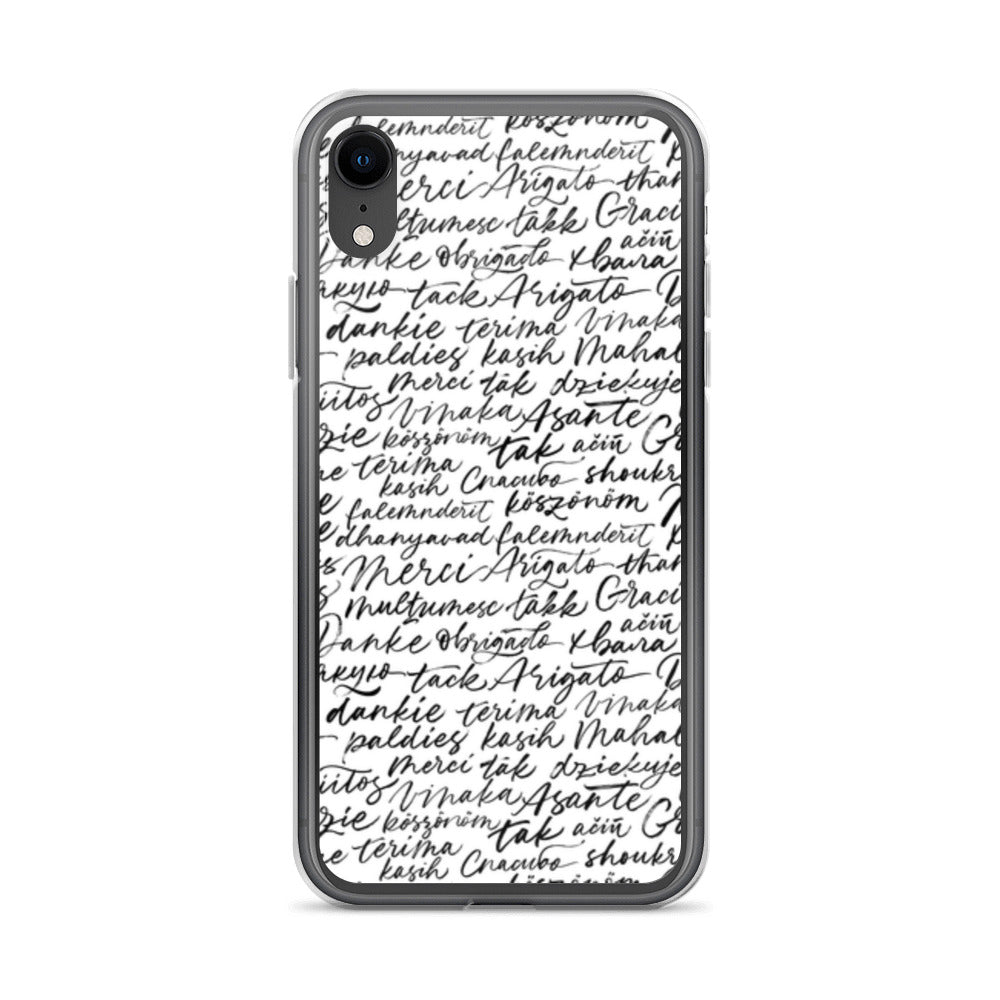 falemnderit köszönöm
dhanyavad falemnderit
merci Arigato than
multumesc takk Graci
Danke Obrigado хвала ačiū
акую tack Arigato
dankie terima vinaka
paldies kasih Mahal
merci tak dziekuje
iitos vinaka Asante
zie köszönöm tak ačiū Gr
e terima
kasih Спасибо shoukr
falemnderit köszönöm
dhanyavad falemnderit
Merci Arigato than
multumesc takk Graci
Danke Obrigado хвала ačiū
акую tack Arigato
dankie terima vinaka
paldies kasih Mahal
merci tak dziekuje
iitos vinaka Asante
zie köszönöm tak ačiū Gr
e terima
kasih Спасибо shoukr
köszönöm